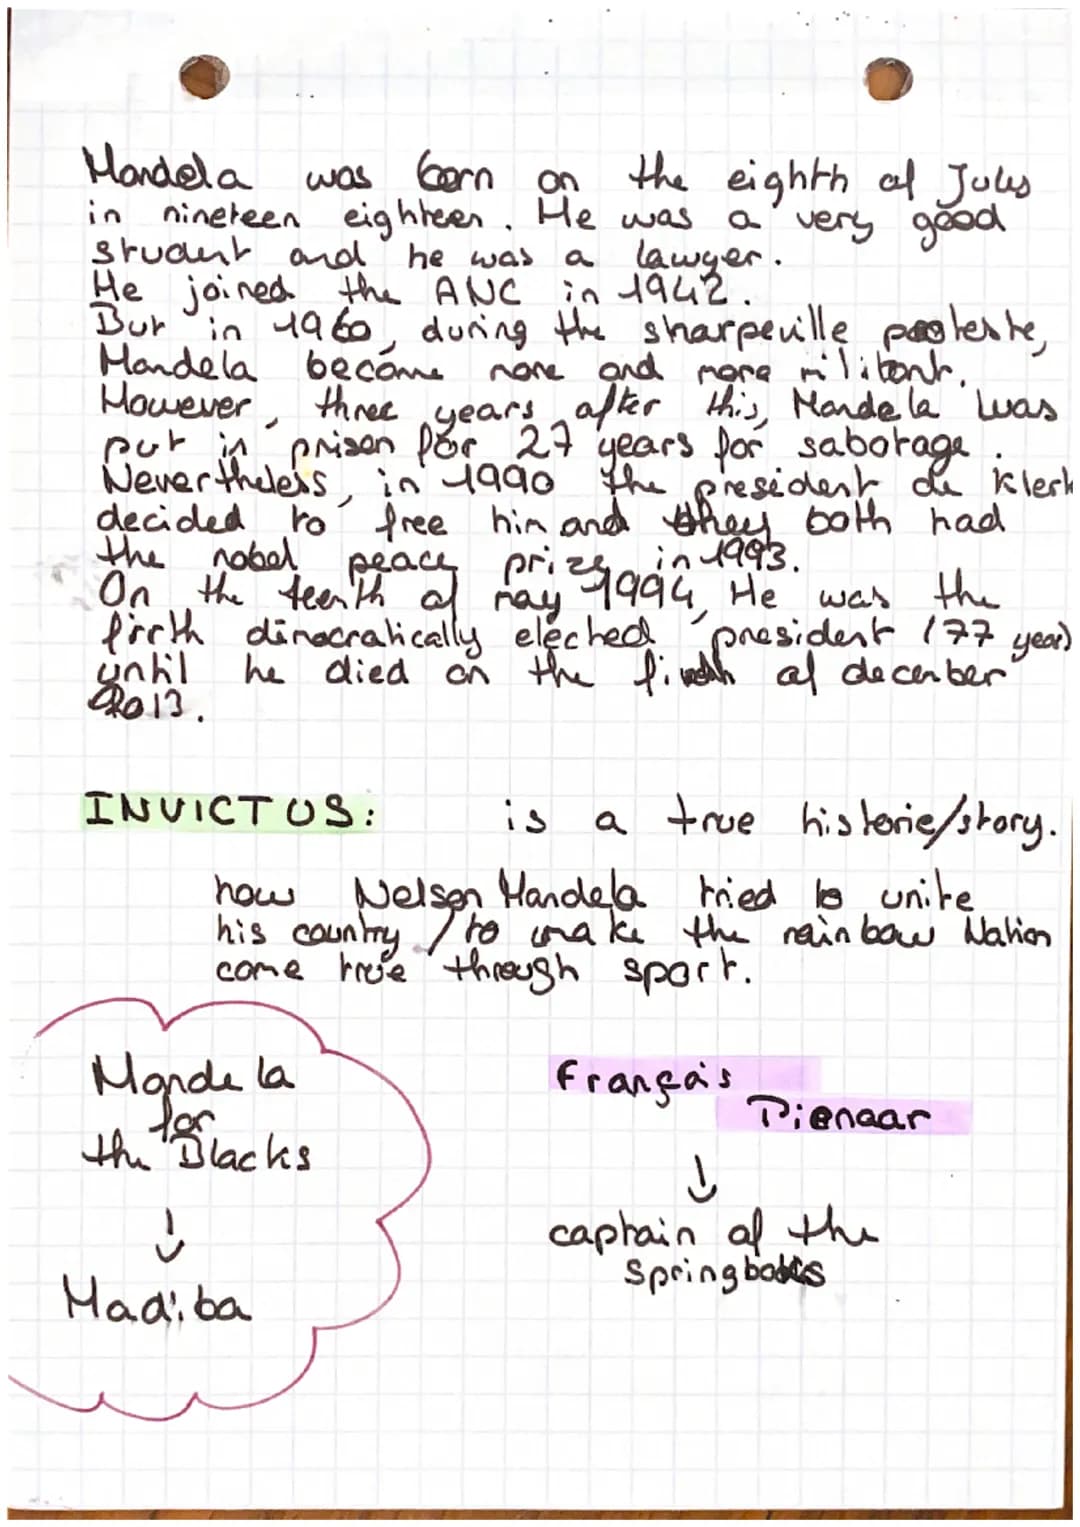 Mandela was born on the eighth of July
in nineteen eighteen. He was a very good
student and he was a lawyer.
He joined the ANC in 1942.
But in 1960, during the sharpeville
Mandela became more and more militant.
However, three years after this, Mandela was
put in prison for 27 years for sabotage.
Nevertheless, in 1990 the president de Klerk
decided to free him and they both had
the nobel peace prize in 1993.
On the teenth of may 1994, He was the
firth dimocratically elected president (77 year)
until he died on the of december
2013.
INVICTUS: is a true historie/story.
how Nelson Mandela tried to unite
his country / to make the rainbow Nation
come true through sport.
Mandela
for
the Blacks
↓
Madiba
Françàis
Pienaar
↓
captain of the
Springboks